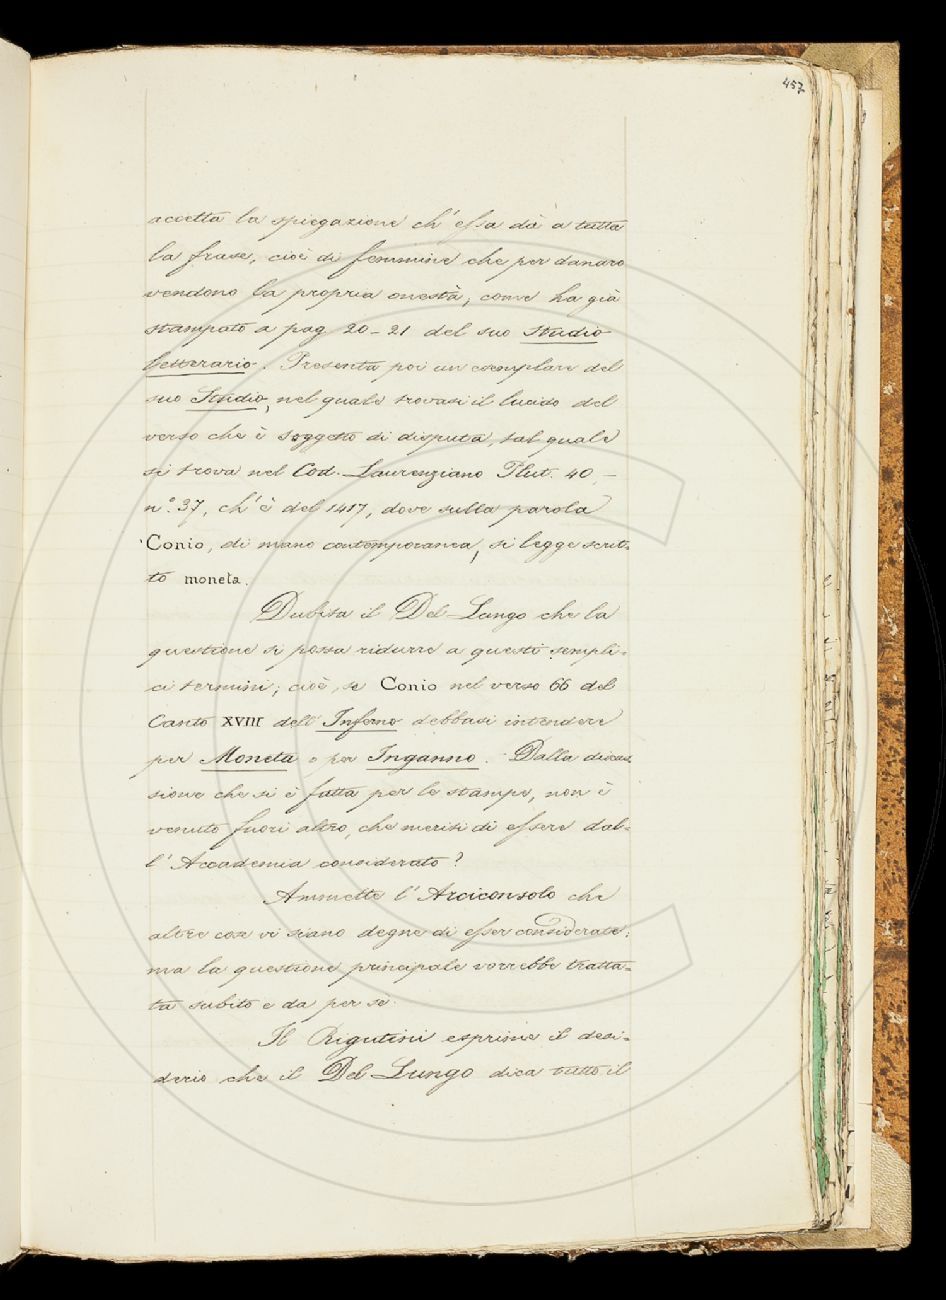 457
accetta la spiegazione ch'essa dà a tutta
la frase, cioè di femmine che per danaro
vendono la propria onestà; come ha già
stampato a pag 20-21 del suo Studio
letterario. Presenta poi un esemplare del
suo Studio, nel quale trovasi il lucido del
verso che è soggetto di disputa, tal quale
si trova nel Cod. Laurenziano Plut. 40,-
n.° 37, ch'è del 1417, dove sulla parola
Conio, di mano contemporanea, si legge scrit-
to moneta.
Dubita il Del Lungo che la
questione si possa ridurre a questi sempli-
ci termini; cioè, se Conio nel verso 66 del
Canto XVIII dell'Inferno debbasi intendere
per Moneta o per Inganno. Dalla discus-
sione che si è fatta per le stampe, non è
venuto fuori altro, che meriti di essere dal-
l'Accademia considerato?
Ammette l'Arciconsolo che
altre cose vi siano degne di esser considerate;
ma la questione principale vorrebbe tratta-
ta subito e da per sè.
Il Rigutini esprime il desi-
derio che il Del Lungo dica tutto il